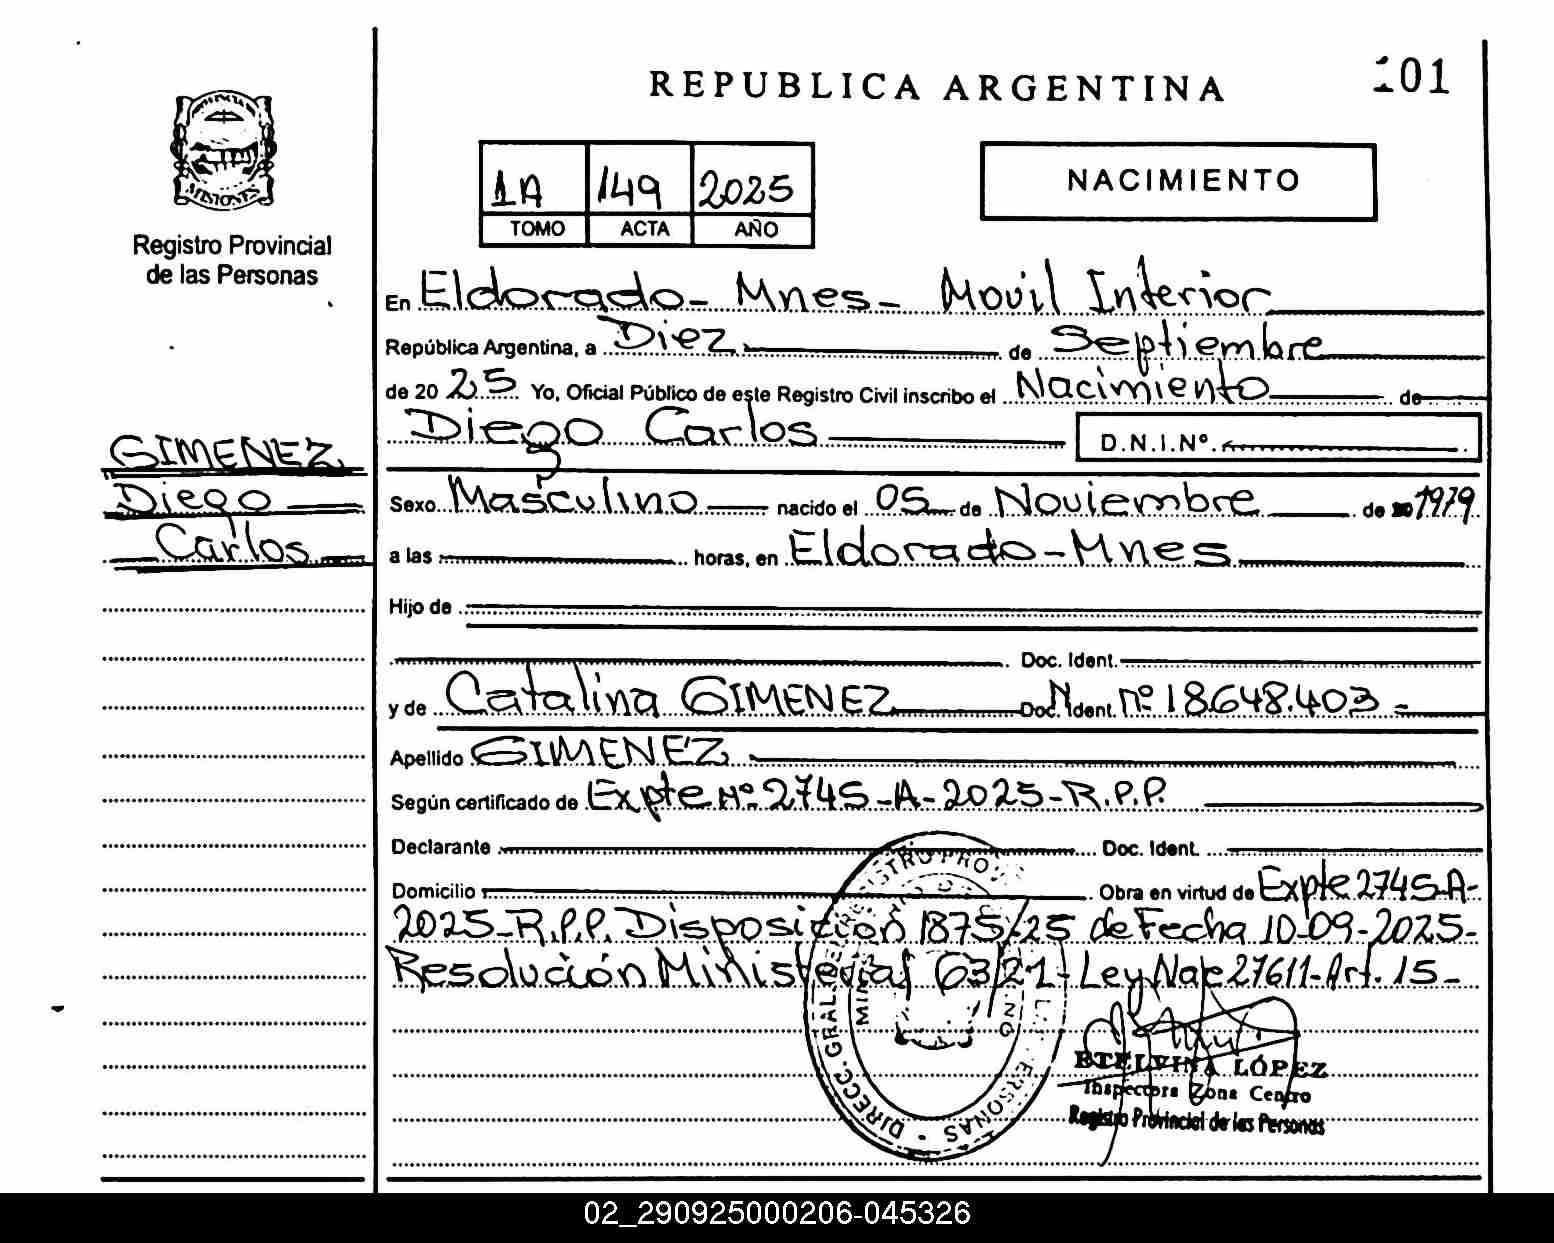 REPUBLICA ARGENTINA
101
MISIONES
Registro Provincial
de las Personas
1A 149 2025
TOMO ACTA AÑO
NACIMIENTO
En Eldorado - Mnes - Movil Interior
República Argentina, a Diez de Septiembre
de 20 25 Yo, Oficial Público de este Registro Civil inscribo el Nacimiento de
Diego Carlos D.N.I.Nº
GIMENEZ
Diego
Carlos
Sexo Masculino nacido el 05 de Noviembre de 1979
a las horas, en Eldorado - Mnes
Hijo de
Doc. Ident.
y de Catalina GIMENEZ Doc. Ident. Nº 18.648.403 -
Apellido GIMENEZ
Según certificado de Expte Nº 2745-A-2025-R.P.P.
Declarante Doc. Ident.
Domicilio Obra en virtud de Expte 2745-A-
2025-R.P.P. Disposición 1875/25 de Fecha 10-09-2025-
Resolución Ministerial 63/21 - Ley Nac 27611-Art. 15-
ETELVINA LÓPEZ
Inspectora Zona Centro
Registro Provincial de las Personas
02_290925000206-045326